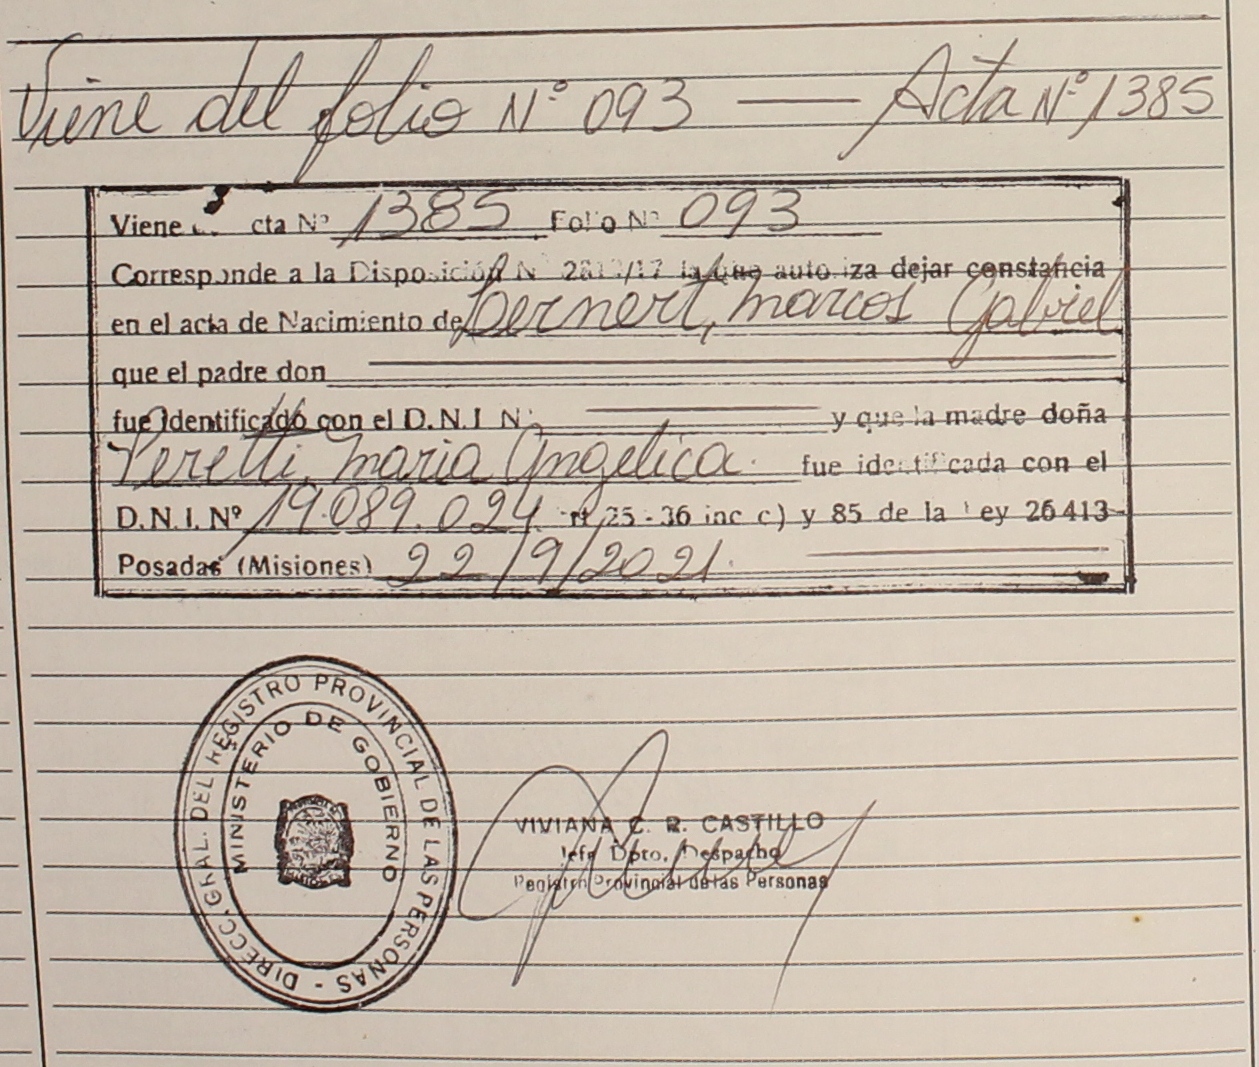 Viene del folio N° 093 — Acta N° 1385
Viene cta Nº 1385 Folio Nº 093
Corresponde a la Disposición N 2812/17 la que autoriza dejar constancia
en el acta de Nacimiento de Bernert, Marcos Gabriel
que el padre don
fue identificado con el D.N.I N° y que la madre doña
Peretti, Maria Angelica. fue identificada con el
D.N.I. Nº 19.089.024 rt 25 - 36 inc c) y 85 de la Ley 26413
Posadas (Misiones) 22/9/2021.
DIRECC. GRAL. DEL REGISTRO PROVINCIAL DE LAS PERSONAS -
MINISTERIO DE GOBIERNO
VIVIANA C. R. CASTILLO
Jefe Dpto. Despacho
Registro Provincial de las Personas